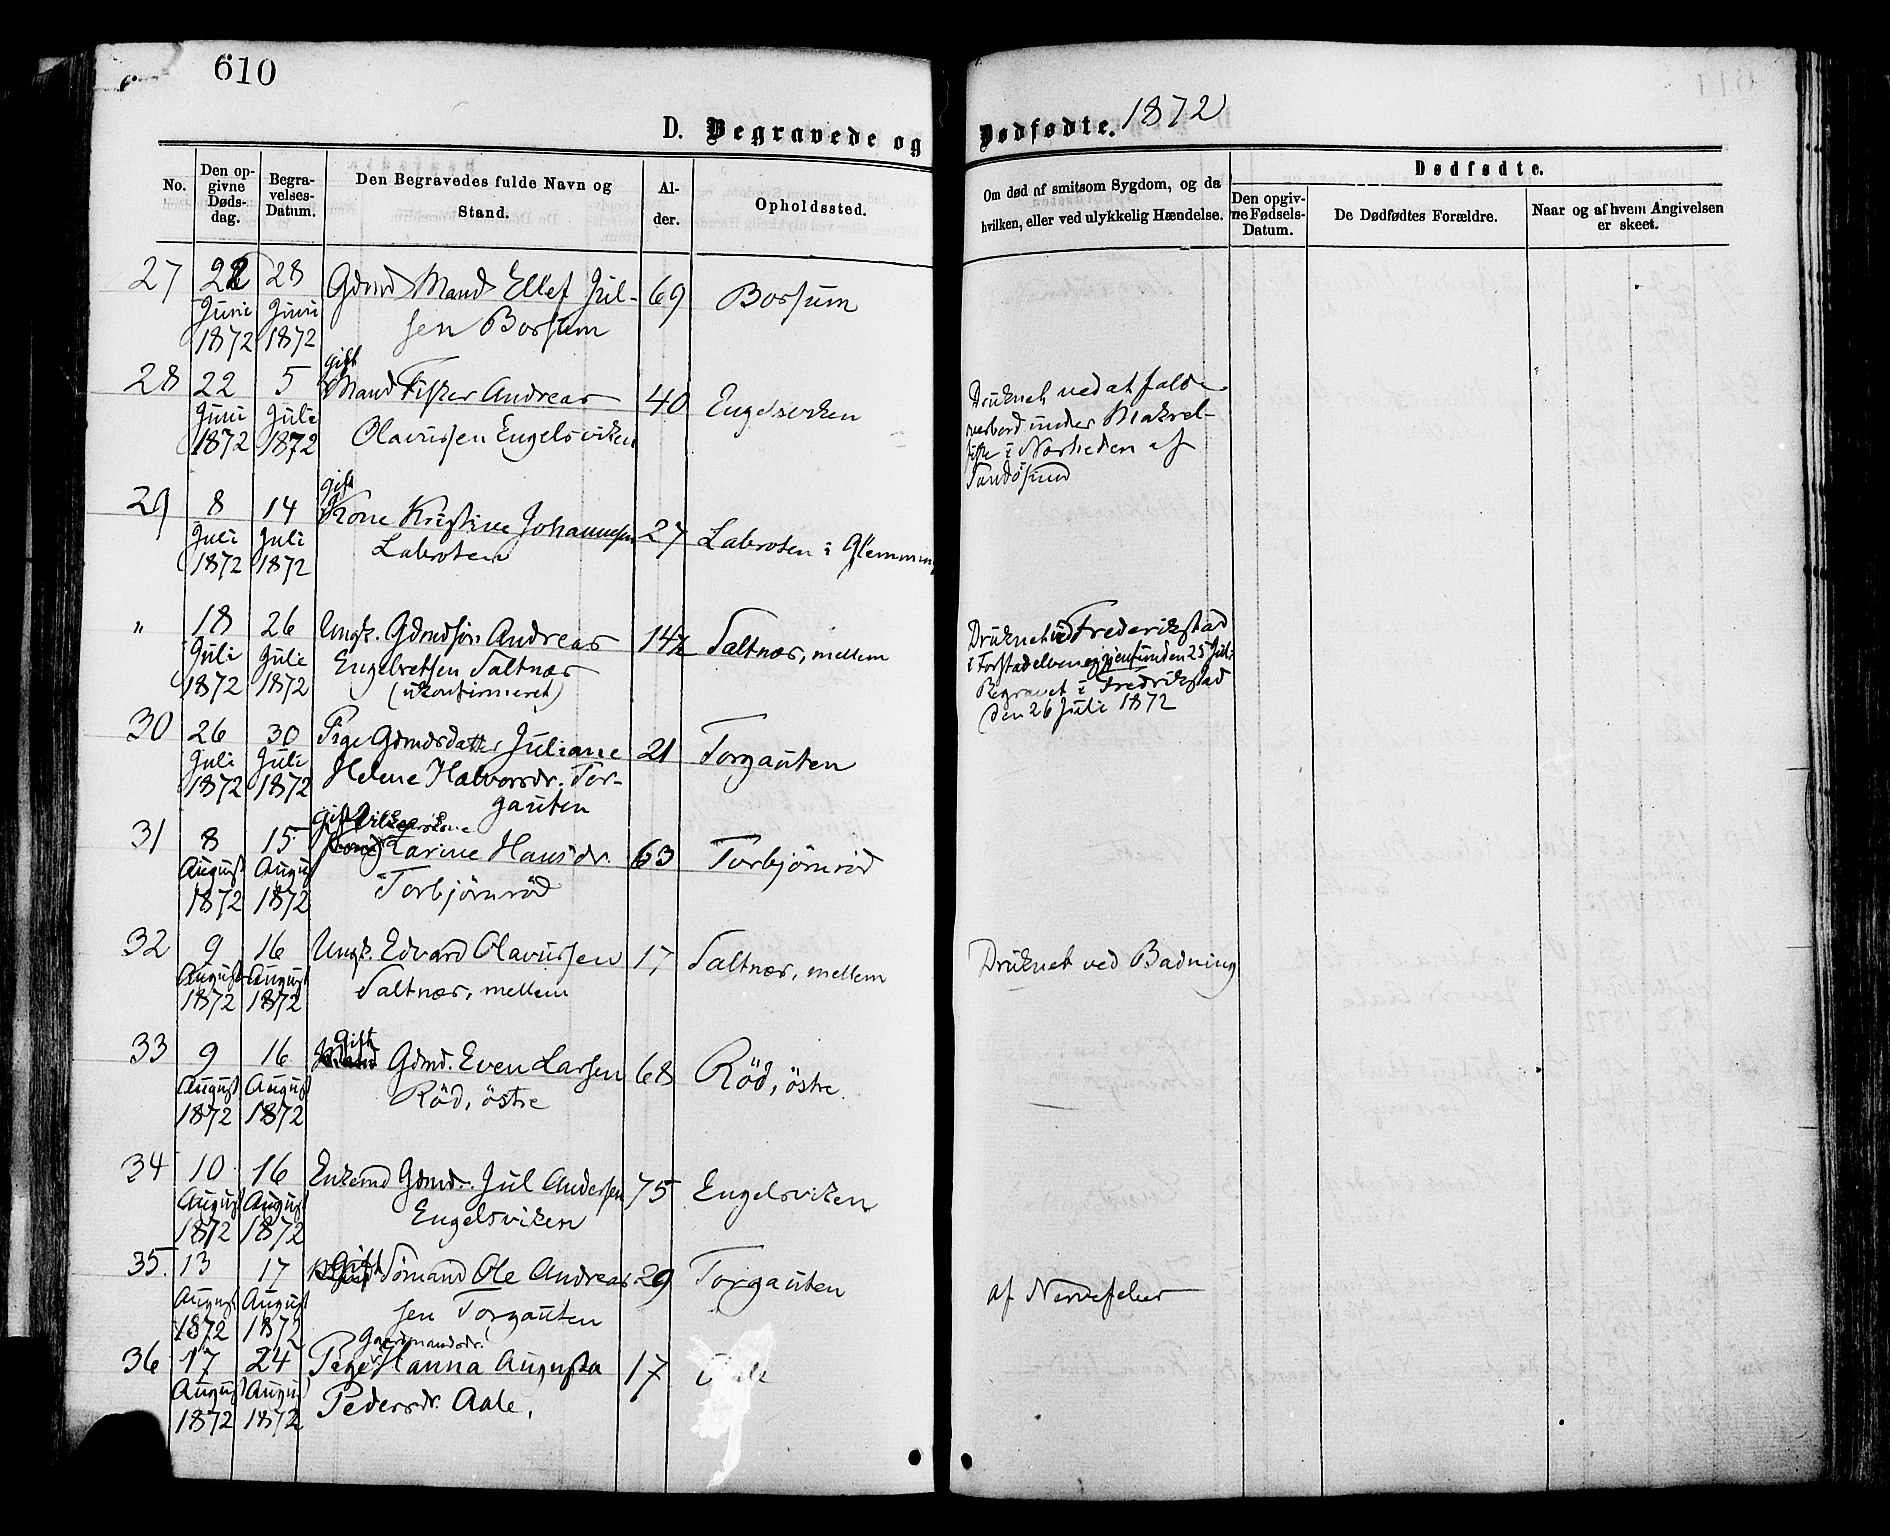 610
D. Begravede og Dødfødte. 1872
No.
Den opgivne Dødsdag.
Begravelses-Datum.
Den Begravedes fulde Navn og Stand.
Alder.
Opholdssted.
Om død af smitsom Sygdom, og da hvilken, eller ved ulykkelig Hændelse.
Dødfødte.
Den opgivne Fødsels-Datum.
De Dødfødtes Forældre.
Naar og af hvem Angivelsen er skeet.
27 22 28 Gdmd Mand Ellef Jul- 69 Borsum
Juni Juni sen Borsum
1872 1872
28 22 5 gift Mand Fisker Andreas 40 Engelsviken Druknet ved at falde
Juni Juli Olavussen Engelsviken overbord under Makrel-
1872 1872 fiske i Nærheden af
Sandösund
29 8 14 gift Kone Kristine Johannesen 27 Labroten i Glemminge
Juli Juli Labroten
1872 1872
" 18 26 Ungk. Gdmdsön Andreas 14½ Saltnæs, mellem Druknet ved Frederikstad
Juli Juli Engelretsen Saltnæs i Forstadelven igjenfunden 25 Juli
1872 1872 (ukonfirmeret) Begravet i Fredrikstad
den 26 Juli 1872
30 26 30 Pige Gdmdsdatter Juliane 21 Torgauten
Juli Juli Helene Halvorsdr. Tor-
1872 1872 gauten
31 8 15 gift Karine Hansdr. 63 Torbjørnröd
August August Torbjörnröd
1872 1872
32 9 16 Ungk. Edvard Olavussen 17 Saltnæs, mellem Druknet ved Badning
August August Saltnæs, mellem
1872 1872
33 9 16 Gift Gdmd. Even Larsen 68 Röd, östre.
August August Röd, östre
1872 1872
34 10 16 Enkemd Gdmd. Jul Andersen 75 Engelsviken
August August Engelsviken
1872 1872
35. 13 17 Gift Sömand Ole Andreas 29 Torgauten af Nervefeber
August August sen Torgauten
1872 1872
Gaardmandsdr.
36 17 24 Pige Hanna Augusta 17
August August Pedersdr. Aale.
1872 1872